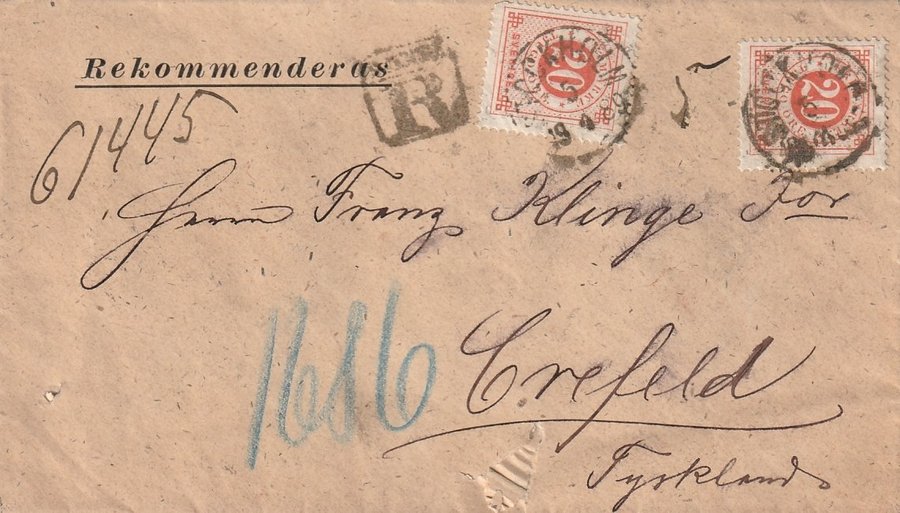 Rekommenderas
R
20
5
20
61445
Herrn Franz Klinge Jor
1686
Crefeld
Tyskland